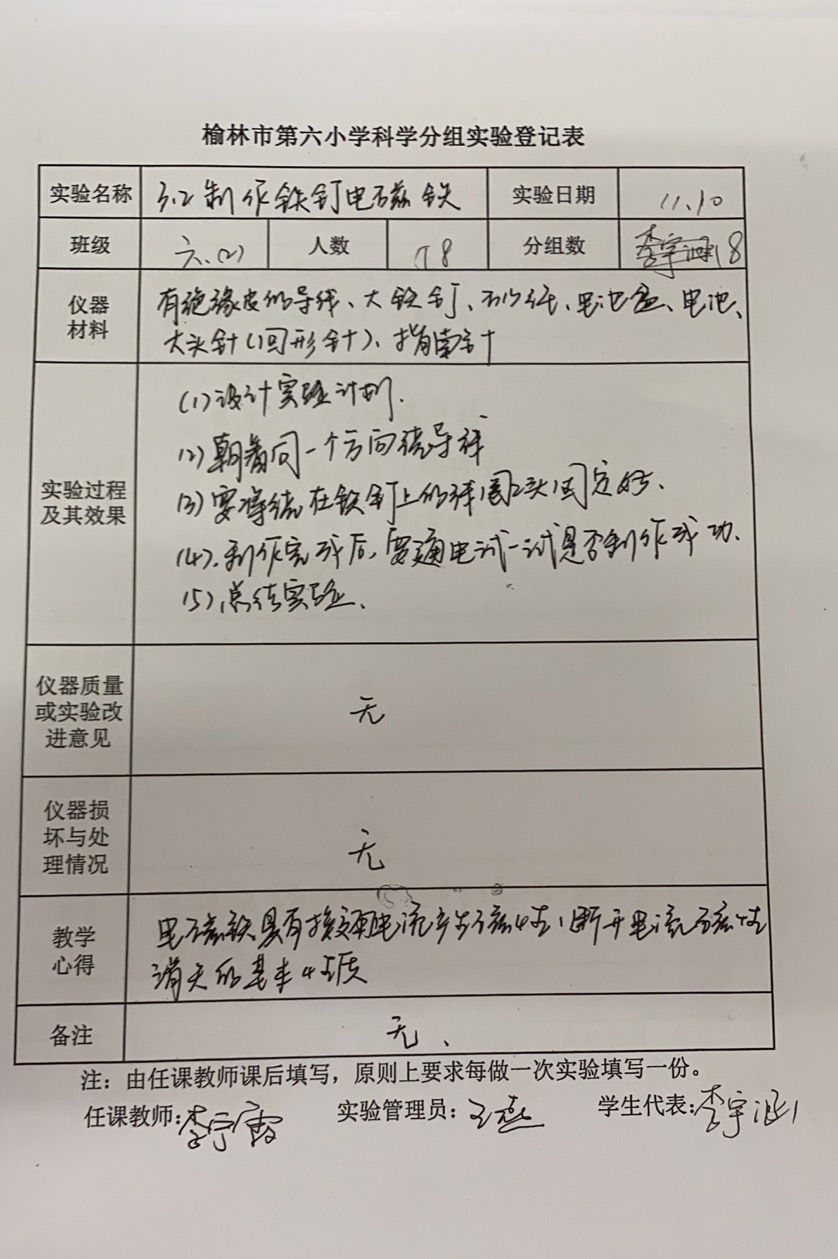 榆林市第六小学科学分组实验登记表
实验名称 3.2制作铁钉电磁铁 实验日期 11.10
班级 六.(2) 人数 分组数 李宇涵 8
仪器材料 有绝缘皮的导线、大铁钉、砂纸、电池盒、电池、
大头针(回形针)、指南针
实验过程及其效果
(1)设计实验计划.
(2)朝着同一个方向绕导线
(3)要将绕在铁钉上的线圈2头固定好、
(4).制作完成后,要通电试一试是否制作成功.
(5)总结实验、
仪器质量或实验改进意见 无
仪器损坏与处理情况 无
教学心得 电磁铁具有接通电流产生磁性,断开电流磁性
消失的基本性质
备注 无、
注：由任课教师课后填写，原则上要求每做一次实验填写一份。
任课教师:李宇霞 实验管理员:王燕 学生代表:李宇涵